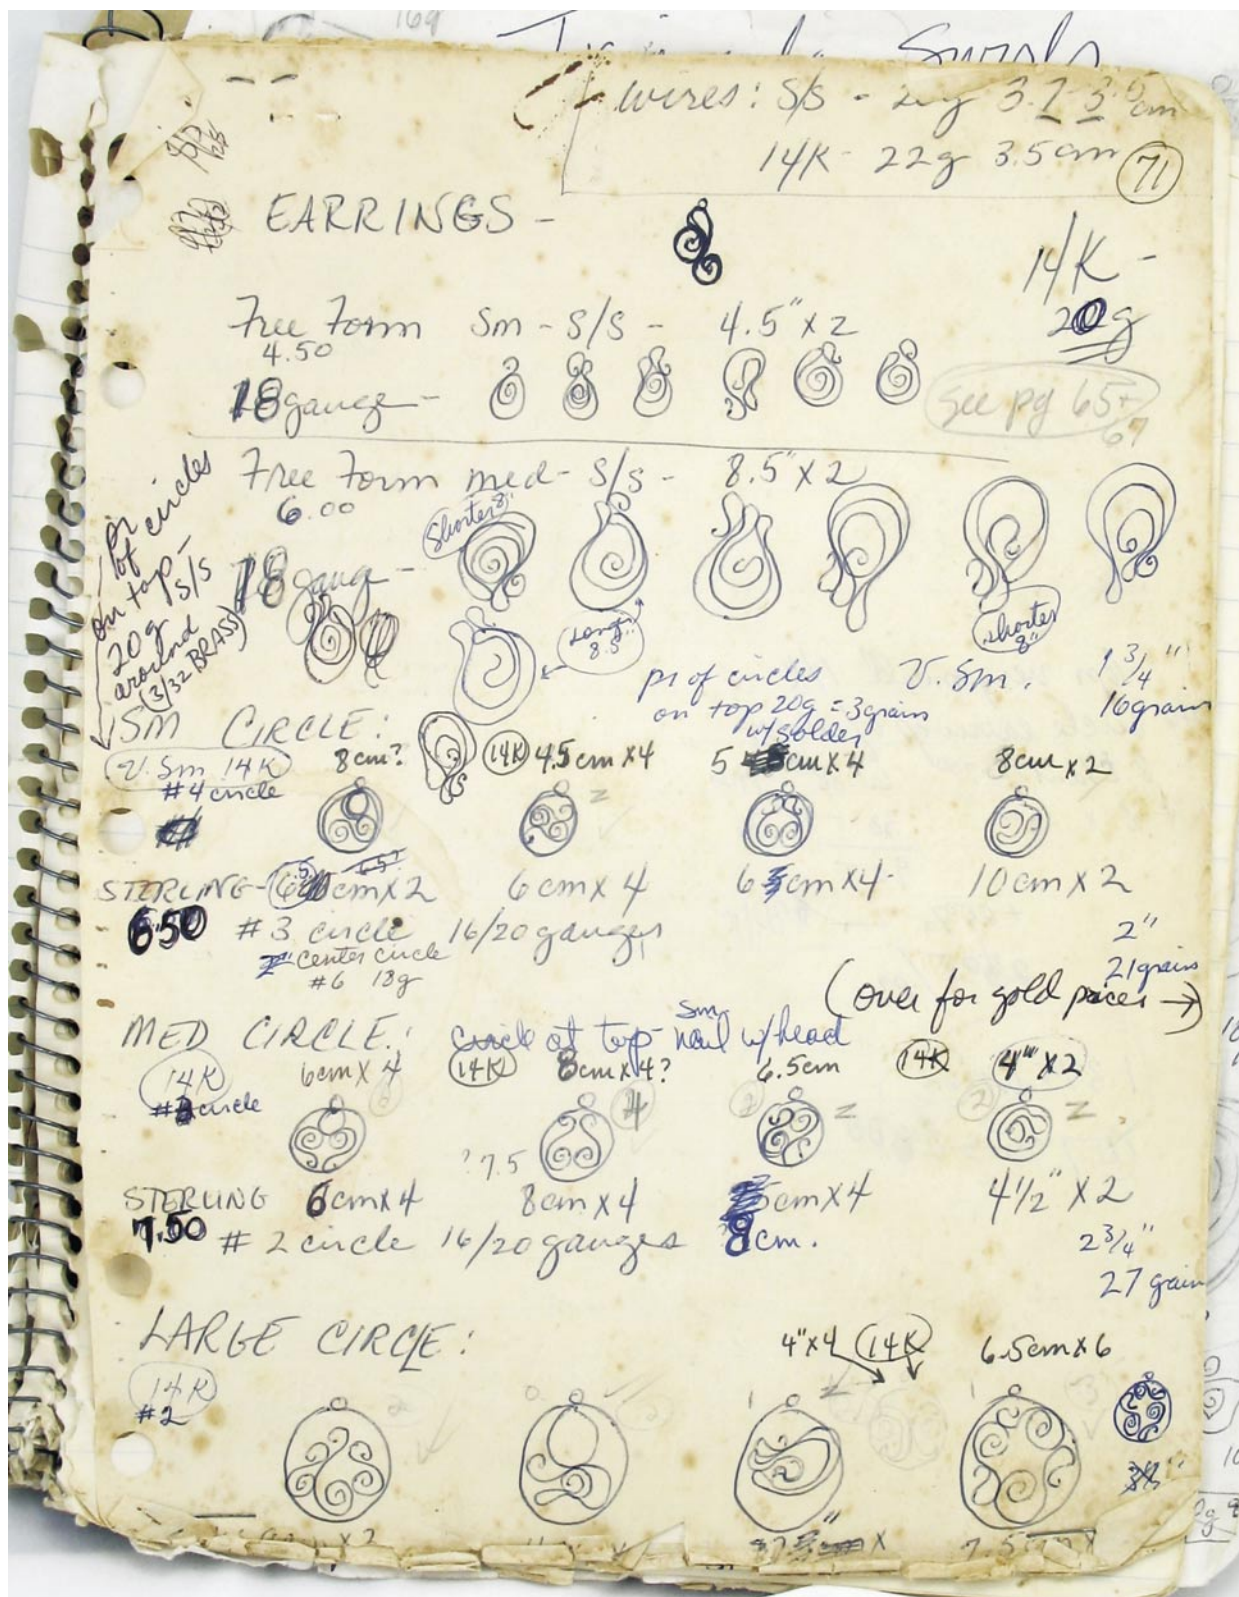 169
wires: S/S - 20g 3.2-3.5cm
14K- 22g 3.5cm
71
EARRINGS -
14K -
20g
Free Form Sm - S/S - 4.5" x 2
4.50
18 gauge -
See pg 65+
67
Free Form med - S/S - 8.5" x 2
6.00
Shorter 8"
18 gaug -
Longer 8.5"
shorter 8"
pr of circles
on top -
20g S/S
around
(3/32 BRASS)
pr of circles
on top 20g = 3grain
w/ solder
V. Sm. 1 3/4"
16grain
SM CIRCLE:
V. Sm 14K 8cm? 14K 4.5cm x4 5 cm x4 8cm x2
#4 circle
STERLING- 6.5 cm x 2 6cm x 4 6 cm x4- 10cm x 2
6.50 #3 circle 16/20 gauges
center circle
#6 18g
2"
21grain
(over for gold prices →)
MED CIRCLE: circle at top - sm nail w/head
14K 6cm x 4 14K 8cm x4? 6.5cm 14K 4" x2
# circle
2 4 2 2
? 7.5
STERLING 6cm x4 8cm x4 cm x4 4 1/2" x 2
7.50 # 2 circle 16/20 gauges 8cm.
2 3/4"
27 grain
LARGE CIRCLE: 4" x4 14K 6.5cm x6
14K
#2
x2
7.5